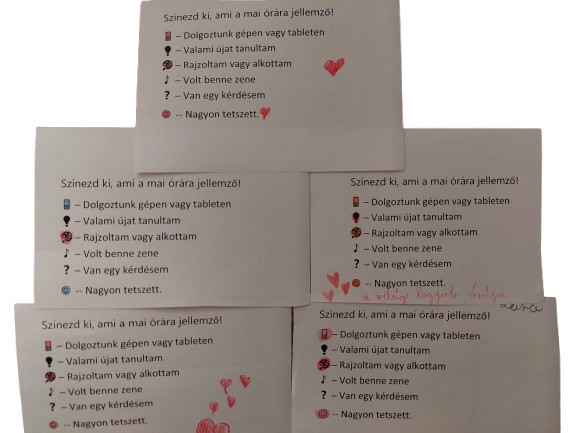 Színezd ki, ami a mai órára jellemző!
– Dolgoztunk gépen vagy tableten
– Valami újat tanultam
– Rajzoltam vagy alkottam
– Volt benne zene
? – Van egy kérdésem
-- Nagyon tetszett.
Színezd ki, ami a mai órára jellemző!
– Dolgoztunk gépen vagy tableten
– Valami újat tanultam
– Rajzoltam vagy alkottam
– Volt benne zene
? – Van egy kérdésem
-- Nagyon tetszett.
Színezd ki, ami a mai órára jellemző!
– Dolgoztunk gépen vagy tableten
– Valami újat tanultam
– Rajzoltam vagy alkottam
– Volt benne zene
? – Van egy kérdésem
-- Nagyon tetszett.
a világ legjobb órája
Színezd ki, ami a mai órára jellemző!
– Dolgoztunk gépen vagy tableten
– Valami újat tanultam
– Rajzoltam vagy alkottam
– Volt benne zene
? – Van egy kérdésem
-- Nagyon tetszett.
Színezd ki, ami a mai órára jellemző!
– Dolgoztunk gépen vagy tableten
– Valami újat tanultam
– Rajzoltam vagy alkottam
– Volt benne zene
? – Van egy kérdésem
-- Nagyon tetszett.